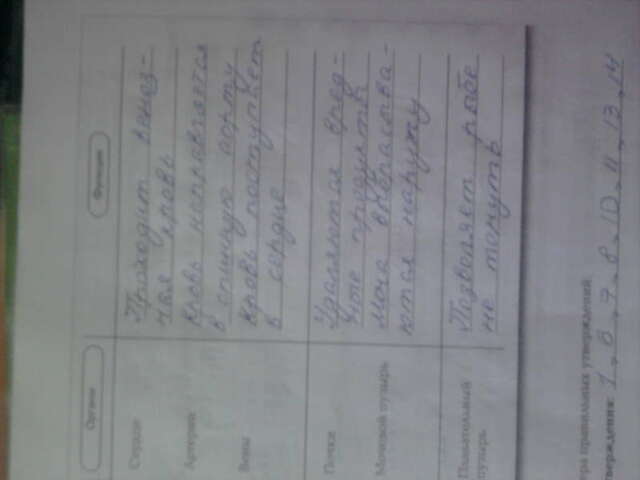 Органы
Функции
Сердце
Проходит веноз-
ная кровь
Артерии
Кровь направляется
в спинную аорту
Вены
Кровь поступает
в сердце
Почки
Удаляются вред-
ные продукты
Мочевой пузырь
Моча
ются наружу
Плавательный
пузырь
Позволяет рыбе
не тонуть
ера правильных утверждений
тверждения: 1, 6, 7, 8, 10, 11, 13, 14